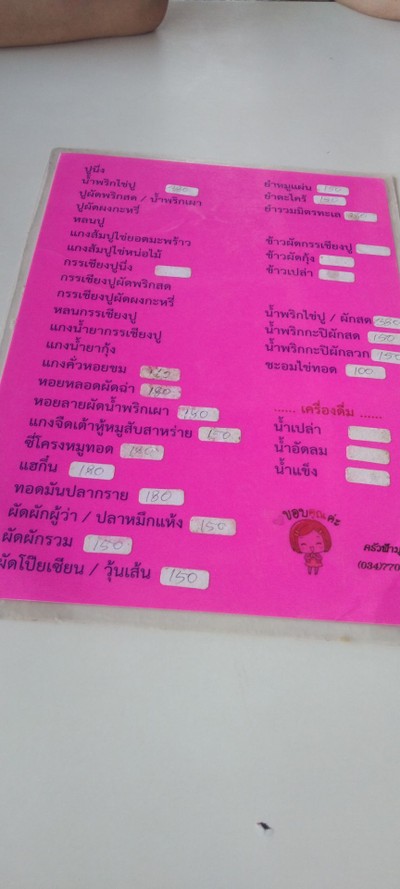 ปูนึ่ง
น้ำพริกไข่ปู
ปูผัดพริกสด / น้ำพริกเผา
ปูผัดผงกะหรี่
หลนปู
แกงส้มปูไข่ยอดมะพร้าว
แกงส้มปูไข่หน่อไม้
กรรเชียงปูนึ่ง
กรรเชียงปูผัดพริกสด
กรรเชียงปูผัดผงกะหรี่
หลนกรรเชียงปู
แกงน้ำยากรรเชียงปู
แกงน้ำยากุ้ง
แกงคั่วหอยขม
หอยหลอดผัดฉ่า 180
หอยลายผัดน้ำพริกเผา 180
แกงจืดเต้าหู้หมูสับสาหร่าย 150
ซี่โครงหมูทอด 180
แฮกึ๊น 180
ทอดมันปลากราย 180
ผัดผักผู้ว่า / ปลาหมึกแห้ง 150
ผัดผักรวม 150
ผัดโป๊ยเซียน / วุ้นเส้น 150
ยำหมูแผ่น 150
ยำตะไคร้ 180
ยำรวมมิตรทะเล
ข้าวผัดกรรเชียงปู
ข้าวผัดกุ้ง
ข้าวเปล่า
น้ำพริกไข่ปู / ผักสด
น้ำพริกกะปิผักสด 150
น้ำพริกกะปิผักลวก 150
ชะอมไข่ทอด 100
...... เครื่องดื่ม ......
น้ำเปล่า
น้ำอัดลม
น้ำแข็ง
ขอบคุณค่ะ
(034)770